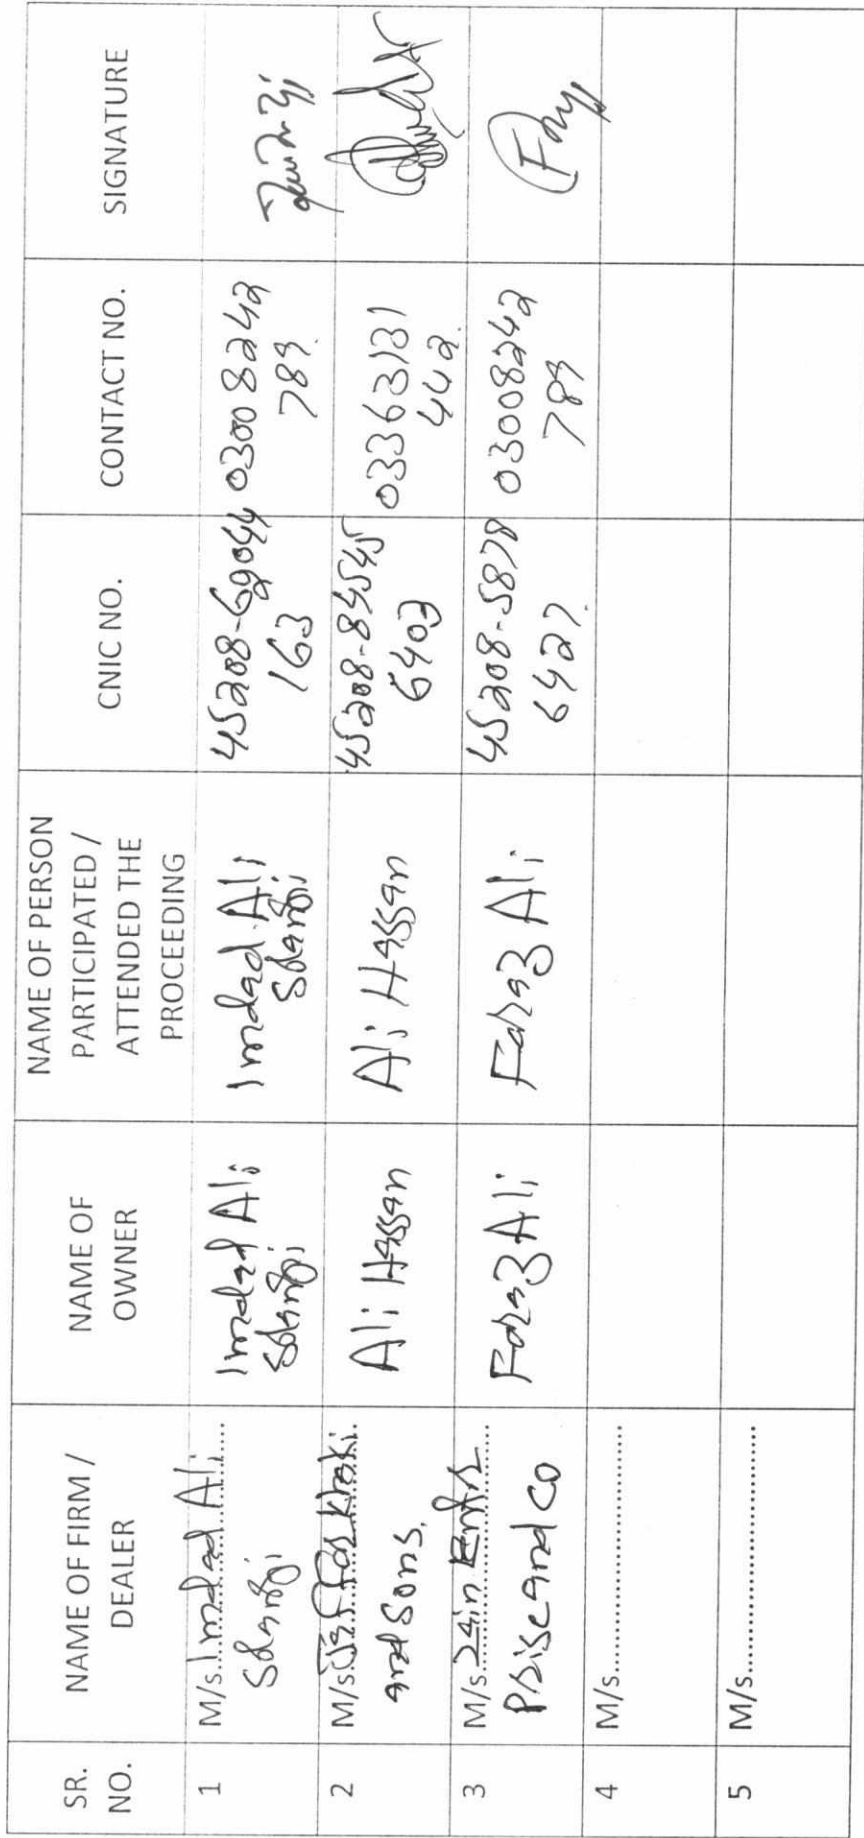 SR.
NO.
NAME OF FIRM /
DEALER
NAME OF
OWNER
NAME OF PERSON
PARTICIPATED /
ATTENDED THE
PROCEEDING
CNIC NO.
CONTACT NO.
SIGNATURE
1
M/s. Imdad Ali
Solangi
Imdad Ali
Solangi
Imdad Ali
Solangi
45208-
163
03008242
789
2
M/s
and Sons.
Ali Hassan
Ali Hassan
45208-84545
6403
03363131
442
3
M/s. Zain Enter
Prise and Co
Faraz Ali
Faraz Ali
45208-5878
6427
03008242
789
4
M/s..............................
5
M/s..............................